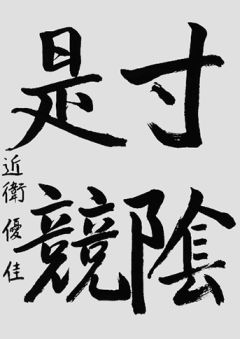 寸陰
是競
近衛優佳